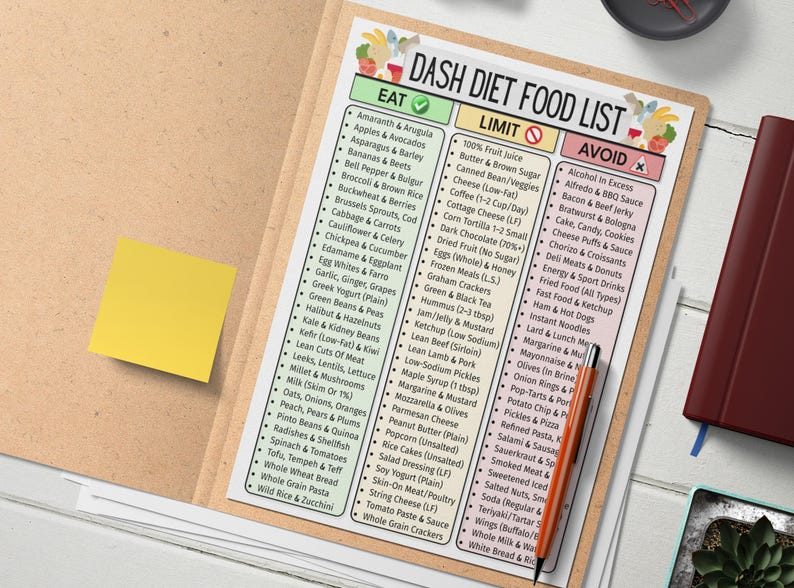 DASH DIET FOOD LIST
EAT
Amaranth & Arugula
Apples & Avocados
Asparagus & Barley
Bananas & Beets
Bell Pepper & Bulgur
Broccoli & Brown Rice
Buckwheat & Berries
Brussels Sprouts, Cod
Cabbage & Carrots
Cauliflower & Celery
Chickpea & Cucumber
Edamame & Eggplant
Egg Whites & Farro
Garlic, Ginger, Grapes
Greek Yogurt (Plain)
Green Beans & Peas
Halibut & Hazelnuts
Kale & Kidney Beans
Kefir (Low-Fat) & Kiwi
Lean Cuts Of Meat
Leeks, Lentils, Lettuce
Millet & Mushrooms
Milk (Skim Or 1%)
Oats, Onions, Oranges
Peach, Pears & Plums
Pinto Beans & Quinoa
Radishes & Shellfish
Spinach & Tomatoes
Tofu, Tempeh & Teff
Whole Wheat Bread
Whole Grain Pasta
Wild Rice & Zucchini
LIMIT
100% Fruit Juice
Butter & Brown Sugar
Canned Bean/Veggies
Cheese (Low-Fat)
Coffee (1-2 Cup/Day)
Cottage Cheese (LF)
Corn Tortilla 1-2 Small
Dark Chocolate (70%+)
Dried Fruit (No Sugar)
Eggs (Whole) & Honey
Frozen Meals (L.S.)
Graham Crackers
Green & Black Tea
Hummus (2-3 tbsp)
Jam/Jelly & Mustard
Ketchup (Low Sodium)
Lean Beef (Sirloin)
Lean Lamb & Pork
Low-Sodium Pickles
Maple Syrup (1 tbsp)
Margarine & Mustard
Mozzarella & Olives
Parmesan Cheese
Peanut Butter (Plain)
Popcorn (Unsalted)
Rice Cakes (Unsalted)
Salad Dressing (LF)
Soy Yogurt (Plain)
Skin-On Meat/Poultry
String Cheese (LF)
Tomato Paste & Sauce
Whole Grain Crackers
AVOID
Alcohol In Excess
Alfredo & BBQ Sauce
Bacon & Beef Jerky
Bratwurst & Bologna
Cake, Candy, Cookies
Cheese Puffs & Sauce
Chorizo & Croissants
Deli Meats & Donuts
Energy & Sport Drinks
Fried Food (All Types)
Fast Food & Ketchup
Ham & Hot Dogs
Instant Noodles
Lard & Lunch
Margarine &
Mayonnaise &
Olives (In Brine
Onion Rings &
Pop-Tarts &
Potato Chip &
Pickles & Pizza
Refined Pasta,
Salami & Sausag
Sauerkraut &
Smoked Meat &
Sweetened Iced
Salted Nuts,
Soda (Regular &
Teriyaki/Tartar
Wings (Buffalo/
Whole Milk &
White Bread &